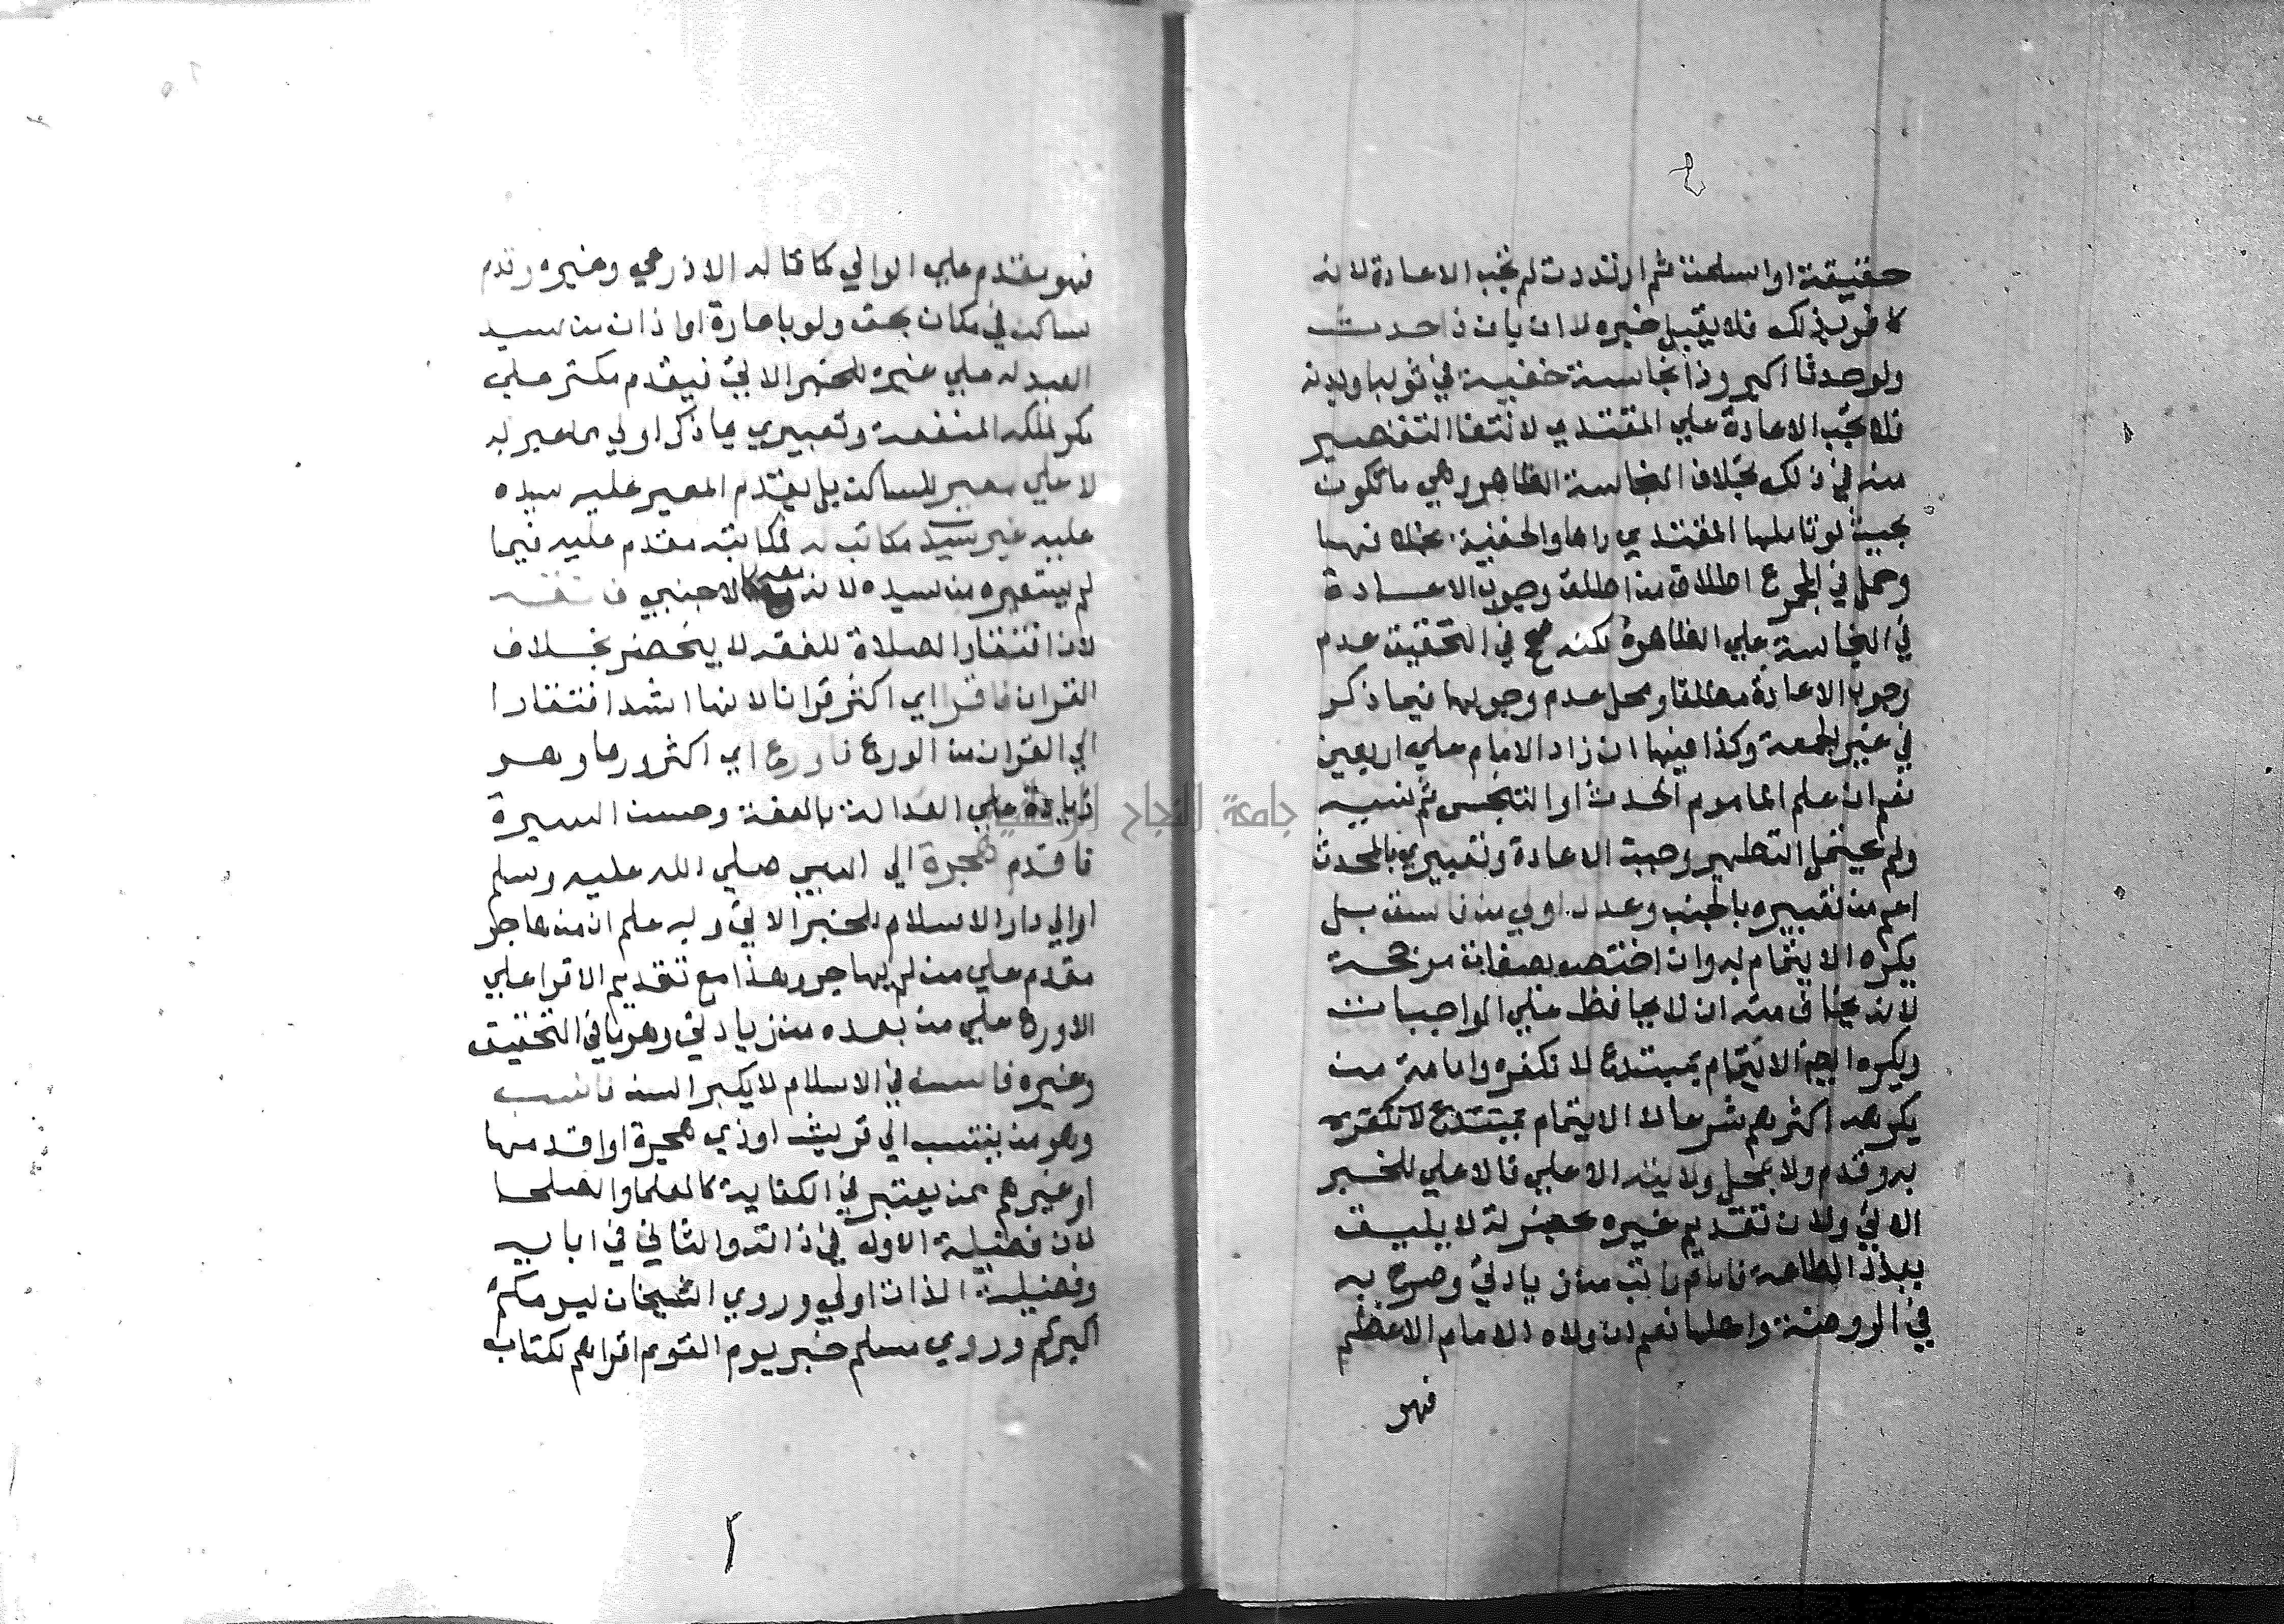 حقيقة او اسلمت ثم ارتددت لم تجب الاعادة لانه
كافر بذلك فلا يقبل خبره لا ان بان ذا حدث
ولو حدثا اكبر وذا نجاسة خفية في ثوبه او بدنه
فلا تجب الاعادة علي المقتدي لانتفا التقصير
منه في ذلك بخلاف النجاسة الظاهر وهي ما تكون
بحيث لو تاملها المقتدي راها والخفية بخلافها
وحمل في المجموع اطلاق من اطلق وجوب الاعادة
في النجاسة علي الظاهرة لكنه صحح في التحقيق عدم
وجوب الاعادة مطلقا ومحل عدم وجوبها فيما ذكر
في غير الجمعة وكذا فيها ان زاد الامام علي اربعين
نعم ان علم الماموم الحدث او التنجس ثم نسيه
ولم يحتمل التطهير وجبت الاعادة وتعبيري بالمحدث
اعم من تعبيره بالجنب وعدل اولي من فاسق بل
يكره الايتمام به وان اختص بصفات مرجحة
لانه يخاف منه ان لا يحافظ علي الواجبات
ويكره ايضا الايتمام بمبتدع لا نكفره وامامة من
يكرهه اكثرهم شرعا لا الايتمام بمبتدع لا نكفره
به وقدم ولا بمحل ولايته الاعلي فالاعلي للخبر
الاتي ولان تقديم غيره بحضرته لا يليق
ببذل الطاعة فامام راتب من زيادتي وصرح به
في الروضة واصلها نعم ان ولاه الامام الاعظم
فهو
فهو مقدم علي الوالي كما قاله الاذرعي وغيره وقدم
ساكن في مكان بحق ولو باعارة او اذن من سيد
العبد له علي غيره للخبر الاتي فيقدم مكتر علي
مكر لملكه المنفعة وتعبيري بما ذكر اولي مما عبر به
لا علي معير للساكن بل يقدم المعير عليه وسيده
عليه غير سيد مكاتب له فمكاتبه مقدم عليه فيما
لم يستعيره من سيده لانه معه كالاجنبي فافقه
لان افتقار الصلاة للفقه لا ينحصر بخلاف
القران فاقرا اي اكثر قرانا لانها اشد افتقارا
الي القران من الورع فاورع اي اكثر ورعا وهو
زيادة علي العدالة بالعفة وحسن السيرة
فاقدم هجرة الي النبي صلي الله عليه وسلم
او الي دار الاسلام للخبر الاتي وبه علم ان من هاجر
مقدم علي من لم يهاجر وهذا مع تقديم الاقرا علي
الاورع علي من بعده من زيادتي وهو ما في التحقيق
وغيره فاسن في الاسلام لا بكبر السن فانسب
وهو من ينتسب الي قريش او ذي هجرة او اقدمها
او غيرهم ممن يعتبر في الكفاية كالعلما والصلحا
لان فضيلة الاول في ذاته والثاني في ابايه
وفضيلة الذات اولي وروي الشيخان ليؤمكم
اكبركم وروي مسلم خبر يوم القوم اقراهم لكتاب
جامعة النجاح الوطنية